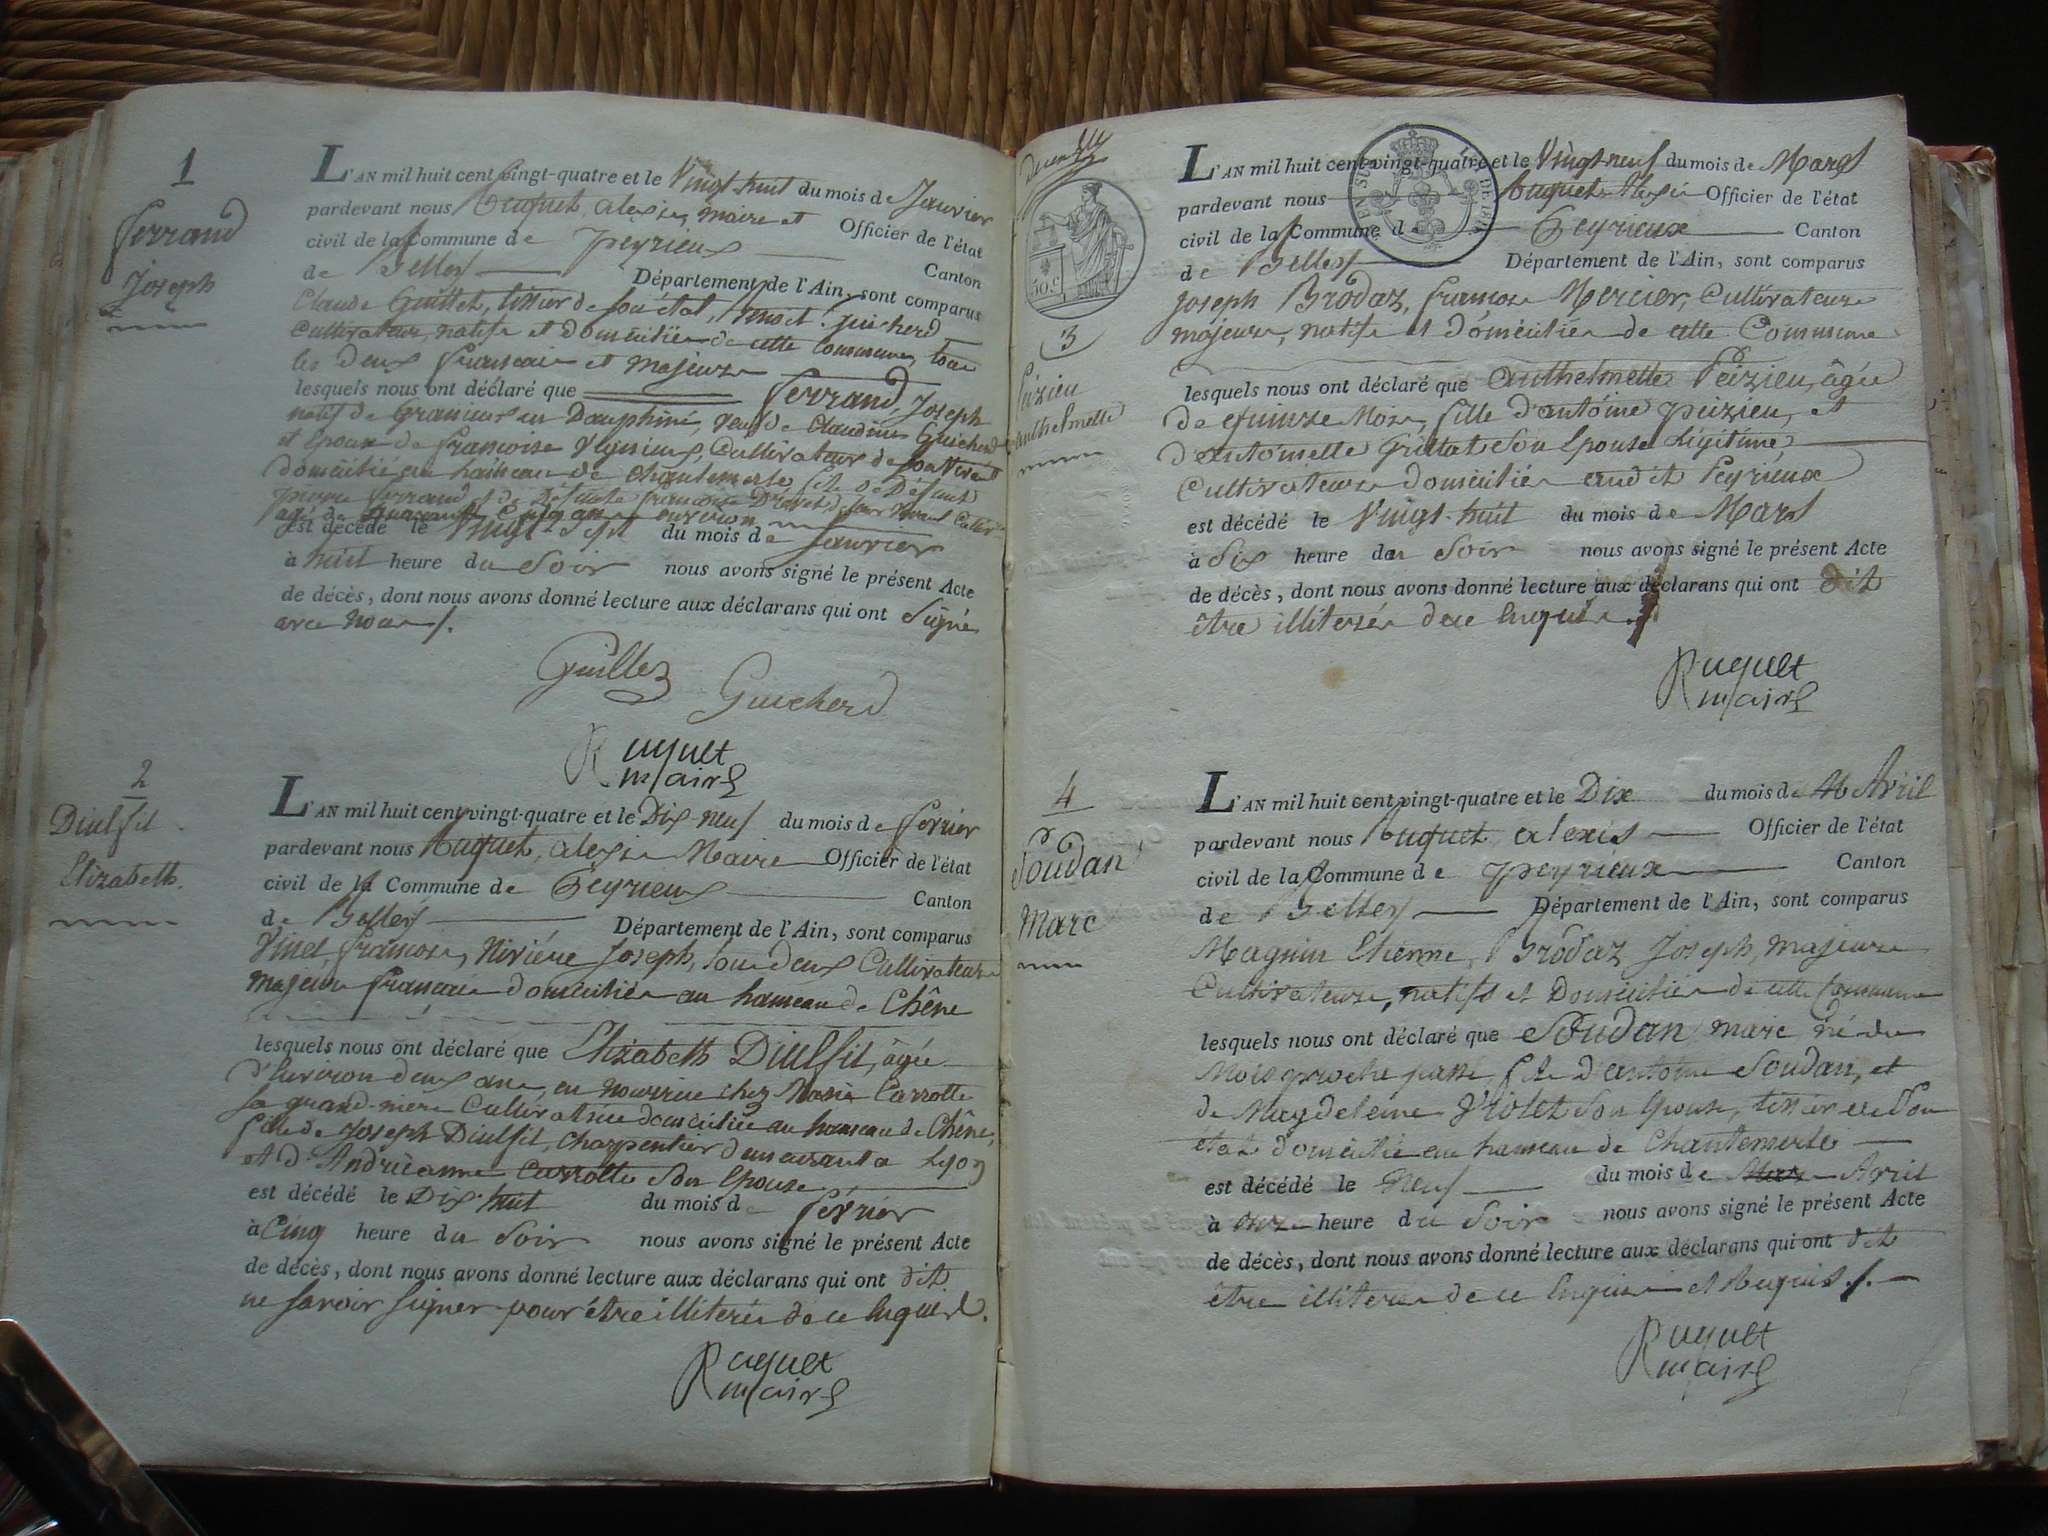 1
Ferrand
Joseph
L'AN mil huit cent vingt-quatre et le Vingt huit du mois de Janvier
pardevant nous Ruquet, alexis, maire et Officier de l'état
civil de la Commune de Peyrieux Canton
de Belley Département de l'Ain, sont comparus
Claude Guillet, tissier de son état, Guicherd
Cultivateur, natifs et domiciliés de cette Commune, tous
les deux francais et majeurs
lesquels nous ont déclaré que Ferrand, Joseph
natif de Granieux en Dauphiné, veuf de Claudine Guicherd
et Epoux de francoise, Cultivateur de son vivant
domicilié au hameau de Chantemerle fils de Défunt
pierre ferrand et de Défunte francoise
agé de quarante Cinq ans environ
est décédé le Vingt Sept du mois de Janvier
à huit heure du Soir nous avons signé le présent Acte
de décès, dont nous avons donné lecture aux déclarans qui ont Signé
avec nous.
Guillet
Guicherd
Ruquet
maire
2
Diulfit
Elizabeth.
L'AN mil huit cent vingt-quatre et le Dix neuf du mois de fevrier
pardevant nous Ruquet, alexis Maire Officier de l'état
civil de la Commune de Peyrieux Canton
de Belley Département de l'Ain, sont comparus
Vinet francois, Rivière Joseph, tous deux Cultivateurs
majeurs francais domiciliés au hameau de Chêne
lesquels nous ont déclaré que Elizabeth Diulfit, âgée
d'Environ deux ans, en nourrice chez Marie Carrotte
sa grand-mère Cultivatrice domiciliée au hameau de Chêne,
fille de Joseph Diulfit, charpentier demeurant a Lyon
et d'Andrieanne Carrotte Son Epouse
est décédé le Dix huit du mois de février
à Cinq heure du Soir nous avons signé le présent Acte
de décès, dont nous avons donné lecture aux déclarans qui ont dit
ne savoir signer pour être illiterés de ce Enquis.
Ruquet
maire
50. c
3
Peizieu
anthelmette
L'AN mil huit cent vingt-quatre et le Vingt neuf du mois de Mars
pardevant nous Ruquet Alexis Officier de l'état
civil de la Commune de Peyrieux Canton
de Belley Département de l'Ain, sont comparus
Joseph Brodaz, françois Mercier, Cultivateurs
majeurs, natifs et domiciliés de cette Commune
lesquels nous ont déclaré que anthelmette Peizieu, âgée
de quinze Mois, fille d'antoine peizieu, et
d'antoinette Grillat Son Epouse Légitime,
Cultivateurs domiciliés audit Peyrieux
est décédé le Vingt-huit du mois de Mars
à Six heure du Soir nous avons signé le présent Acte
de décès, dont nous avons donné lecture aux déclarans qui ont dit
être illiterés de ce Enquis.
Ruquet
maire
4
Soudan
Marc
L'AN mil huit cent vingt-quatre et le Dix du mois de Avril
pardevant nous Ruquet alexis Officier de l'état
civil de la Commune de Peyrieux Canton
de Belley Département de l'Ain, sont comparus
Magnin Etienne, Brodaz Joseph, majeurs
Cultivateurs, natifs et Domiciliés de cette Commune
lesquels nous ont déclaré que Soudan marc né du
Mois proche passé, fils d'antoine Soudan, et
de Magdeleine Violet Son Epouse, tissier de Son
état domicilié au hameau de Chantemerle
est décédé le neuf du mois de Mars Avril
à onze heure du Soir nous avons signé le présent Acte
de décès, dont nous avons donné lecture aux déclarans qui ont dit
être illiterés de ce Enquis et Requis.
Ruquet
maire